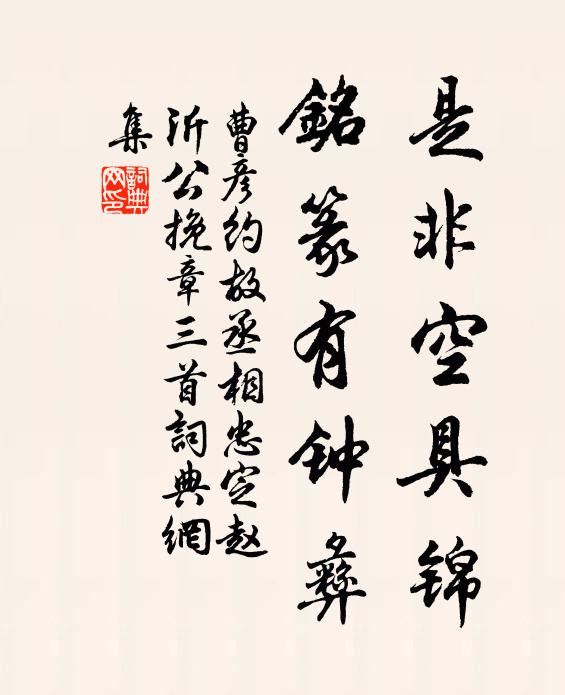 是非空具锦
銘篆有钟彝
曹彦约故丞相忠定赵
沂公挽章三首詞典網
集
詞典
网印